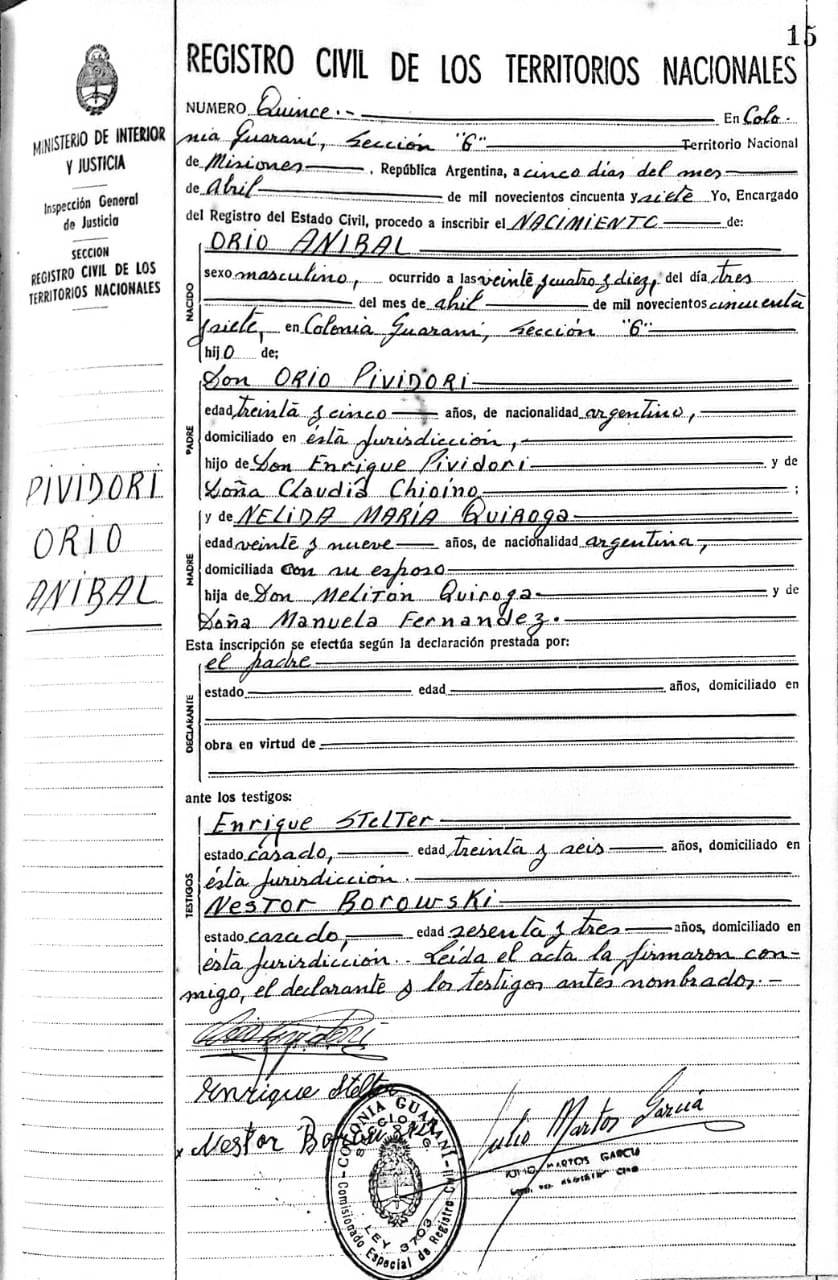 15
MINISTERIO DE INTERIOR
Y JUSTICIA
Inspección General
de Justicia
SECCION
REGISTRO CIVIL DE LOS
TERRITORIOS NACIONALES
PIVIDORI
ORIO
ANIBAL
REGISTRO CIVIL DE LOS TERRITORIOS NACIONALES
NUMERO Quince.- En Colo-
nia Guaraní, Sección "G" Territorio Nacional
de Misiones, República Argentina, a cinco días del mes
de Abril de mil novecientos cincuenta y siete Yo, Encargado
del Registro del Estado Civil, procedo a inscribir el NACIMIENTO de:
NACIDO
ORIO ANIBAL
sexo masculino, ocurrido a las veinte y cuatro y diez, del día tres
del mes de abril de mil novecientos cincuenta
y siete, en Colonia Guaraní, Sección "G"
hijo de;
PADRE
Don ORIO PIVIDORI
edad treinta y cinco años, de nacionalidad argentino,
domiciliado en ésta Jurisdicción,
hijo de Don Enrique Pividori y de
Doña Claudia Chioino ;
MADRE
y de NELIDA MARIA QUIROGA
edad veinte y nueve años, de nacionalidad argentina,
domiciliada con su esposo
hija de Don Meliton Quiroga y de
Doña Manuela Fernandez.
Esta inscripción se efectúa según la declaración prestada por:
DECLARANTE
el padre
estado edad años, domiciliado en
obra en virtud de
ante los testigos:
TESTIGOS
Enrique Stelter
estado casado, edad treinta y seis años, domiciliado en
ésta Jurisdicción.
Nestor Borowski
estado casado, edad sesenta y tres años, domiciliado en
ésta Jurisdicción.. Leída el acta la firmaron con-
migo, el declarante y los testigos antes nombrados.-
Enrique Stelter
x Nestor Borowski
Julio Martos García
JULIO MARTOS GARCIA
COLONIA GUARANI
SECCION G
LEY 3703
Comisionado Especial de Registro Civil